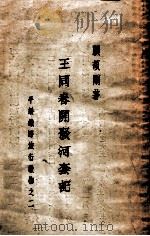 顧頡剛著
王同春開發河套記
平綏鐵路旅行叢書之二